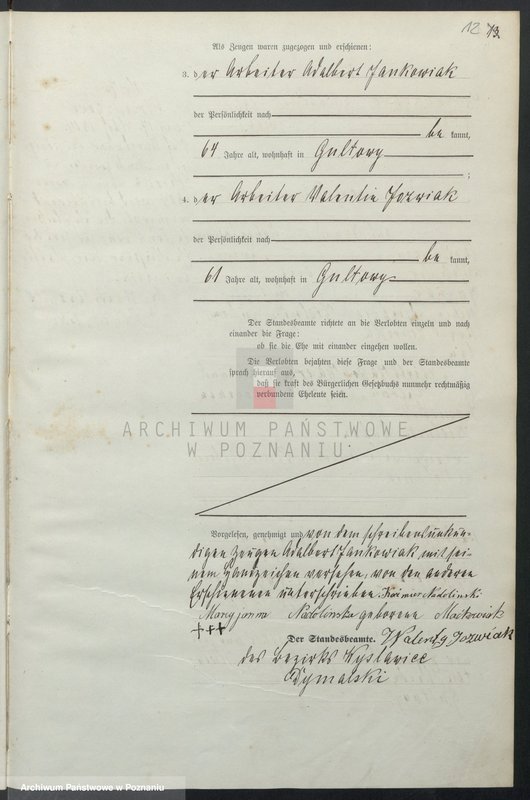 12 13.
Als Zeugen waren zugezogen und erschienen:
3. der Arbeiter Adalbert Jankowiak
der Persönlichkeit nach
be kannt,
64 Jahre alt, wohnhaft in Gultowy
;
4. der Arbeiter Valentin Jozwiak
der Persönlichkeit nach
be kannt,
61 Jahre alt, wohnhaft in Gultowy
Der Standesbeamte richtete an die Verlobten einzeln und nach
einander die Frage:
ob sie die Ehe mit einander eingehen wollen.
Die Verlobten bejahten diese Frage und der Standesbeamte
sprach hierauf aus,
daß sie kraft des Bürgerlichen Gesetzbuchs nunmehr rechtmäßig
verbundene Eheleute seien.
ARCHIWUM PAŃSTWOWE
W POZNANIU
Vorgelesen, genehmigt und von dem schreibensunkun-
digen Zeugen Adalbert Jankowiak mit sei-
nem Handzeichen versehen, von den anderen
Erschienenen unterschrieben. Nadolinski
Maryjanna Nadolinska geborene Maćkowiak
+++
Der Standesbeamte. Walenty Jozwiak
des Bezirks
Archiwum Państwowe w Poznaniu